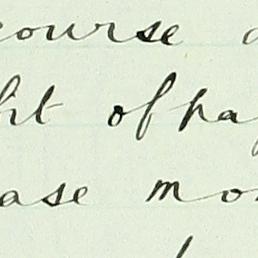 course
ht of pa
ase mo